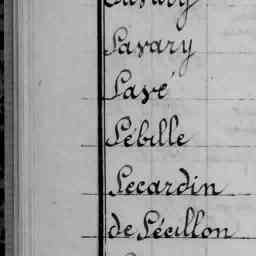 Savary
Savé
Sébille
Secardin
de Sécillon